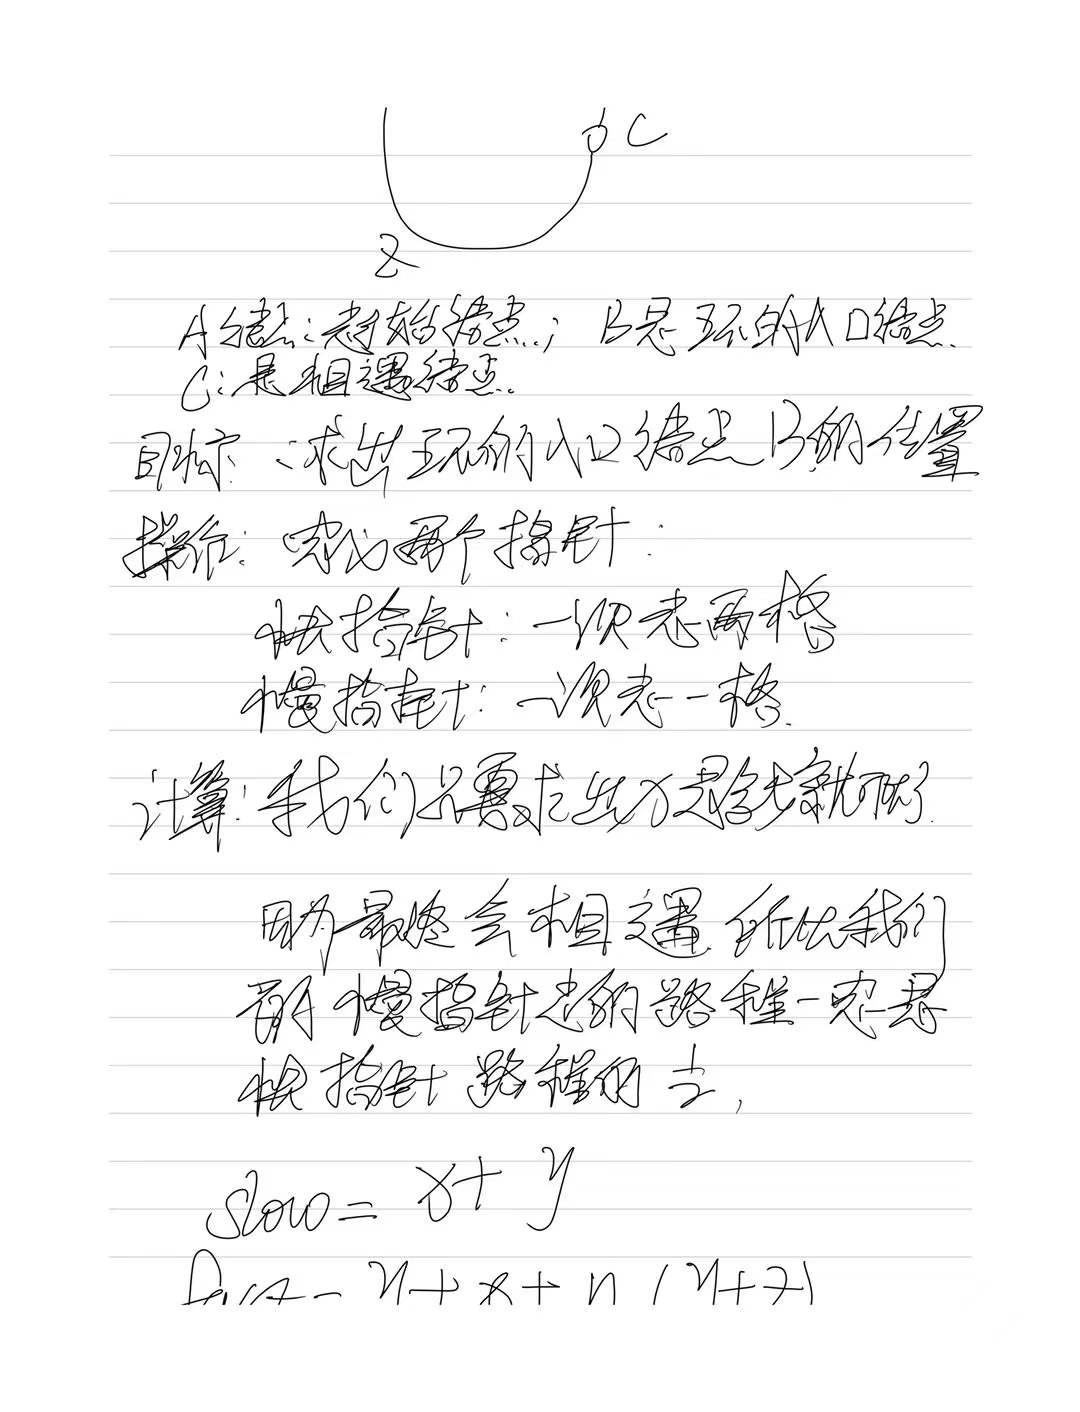 C
Z
A 结点:起始结点; B是环的入口结点.
C:是相遇结点.
目标: 求出环的入口结点B的位置
操作: 定义两个指针:
快指针:一次走两格
慢指针:一次走一格.
计算:我们只要求出x是多少就可以了.
因为最终会相遇 所以我们
慢指针走的路程一定是
快指针路程的 1/2,
slow = x + y
y + x + n (y+z)